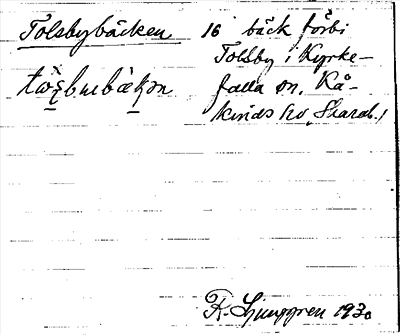 Tolsbybäcken 16 bäck förbi
Tolsby i Kyrke-
falla sn, Kå-
kinds hd, Skarab. l
R. Ljunggren 1930